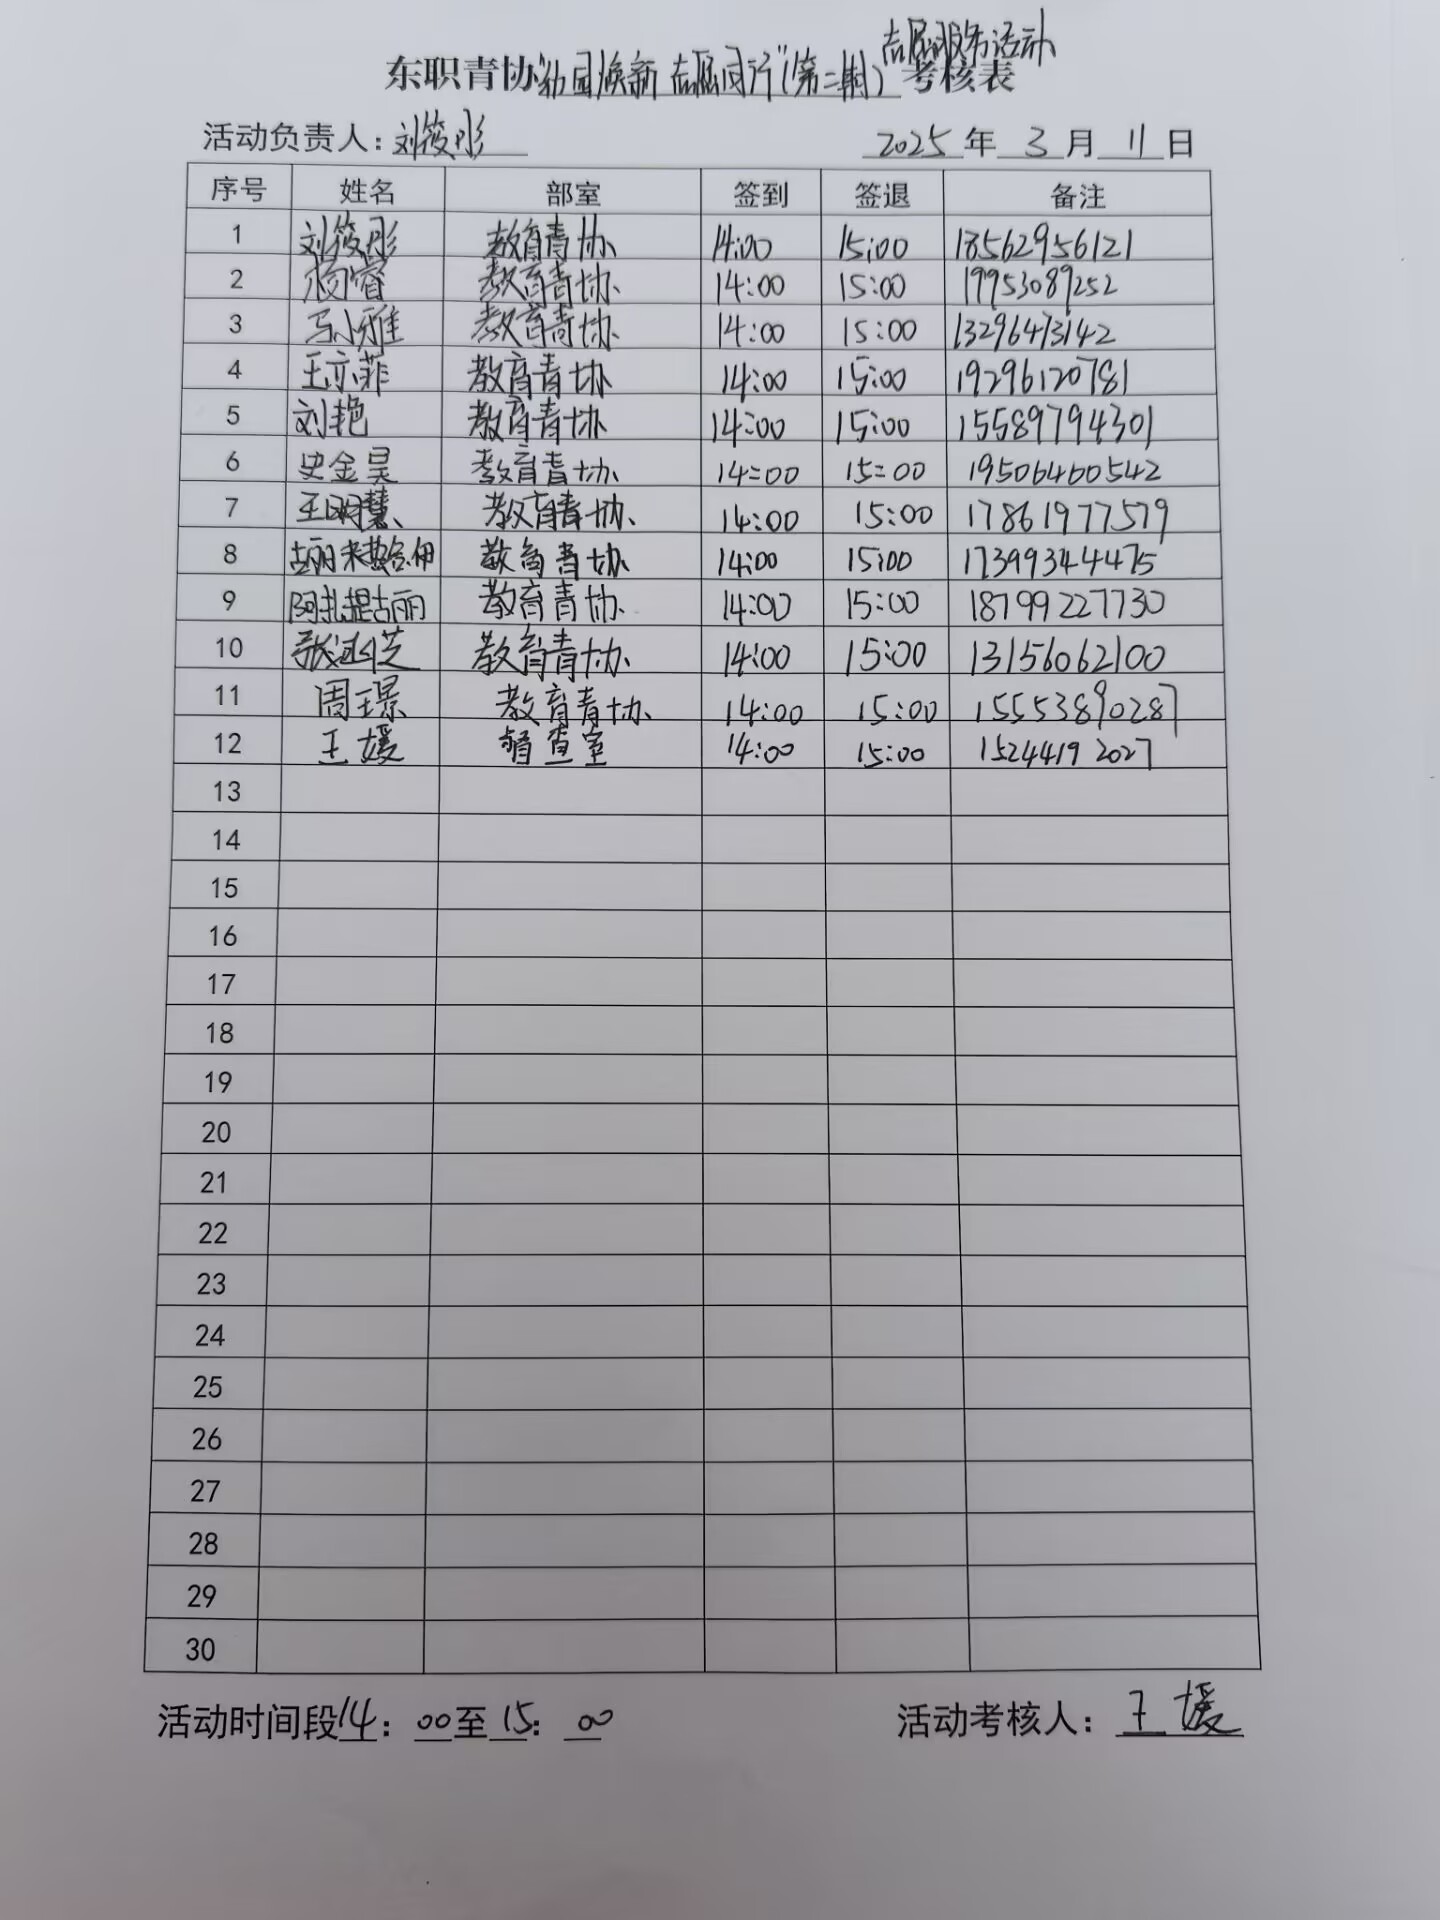 志愿服务活动
东职青协“幼园焕新 志愿同行”(第二期) 考核表
活动负责人：刘筱彤 2025年3月11日
序号 姓名 部室 签到 签退 备注
1 刘筱彤 教育青协 14:00 15:00 18562956121
2 杨睿 教育青协 14:00 15:00 19953089252
3 马小雅 教育青协 14:00 15:00 13296473142
4 王亦菲 教育青协 14:00 15:00 19296120781
5 刘艳 教育青协 14:00 15:00 15589794301
6 史金昊 教育青协 14:00 15:00 19506460542
7 王明慧 教育青协 14:00 15:00 17861977579
8 教育青协 14:00 15:00 17399344475
9 阿扎提古丽 教育青协 14:00 15:00 18799227730
10 教育青协 14:00 15:00 13156062100
11 周璟 教育青协 14:00 15:00 15553890287
12 王媛 督查室 14:00 15:00 15244192027
13
14
15
16
17
18
19
20
21
22
23
24
25
26
27
28
29
30
活动时间段14：00至15：00 活动考核人：王媛